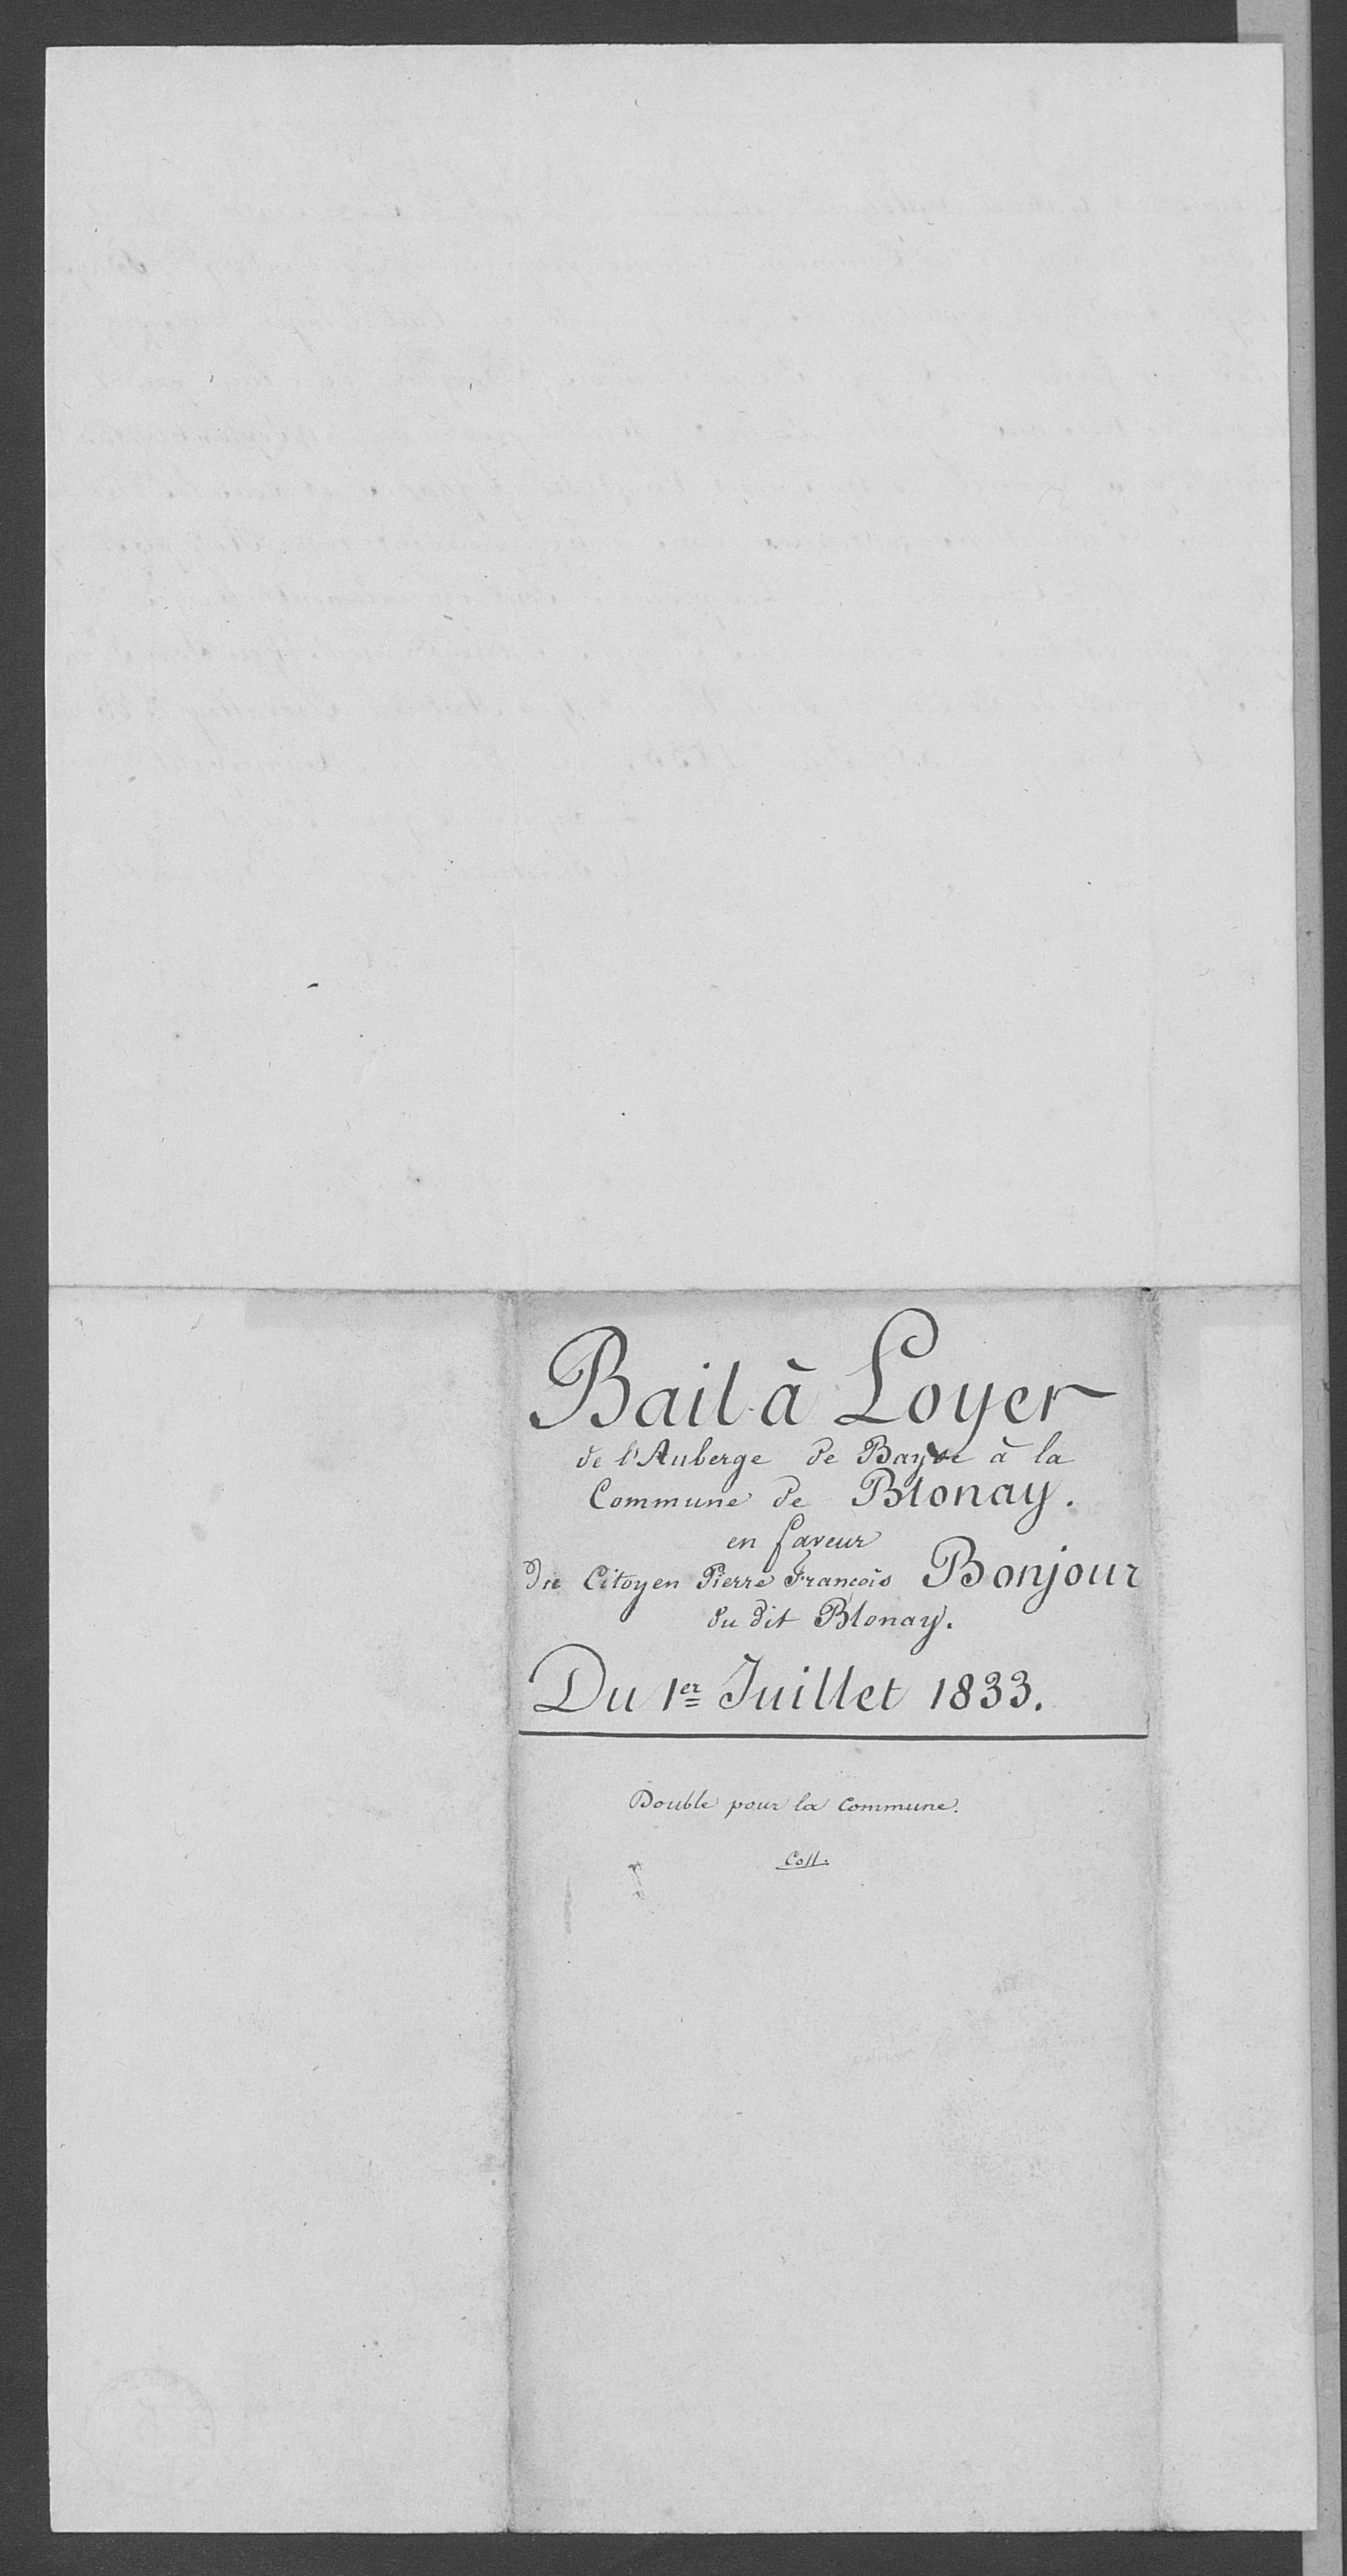 Bail à Loyer
de l'Auberge de Bayse à la
Commune de Blonay.
en faveur
du Citoyen Pierre François Bonjour
du dit Blonay.
Du 1er Juillet 1833.
Double pour la Commune.
Coll.